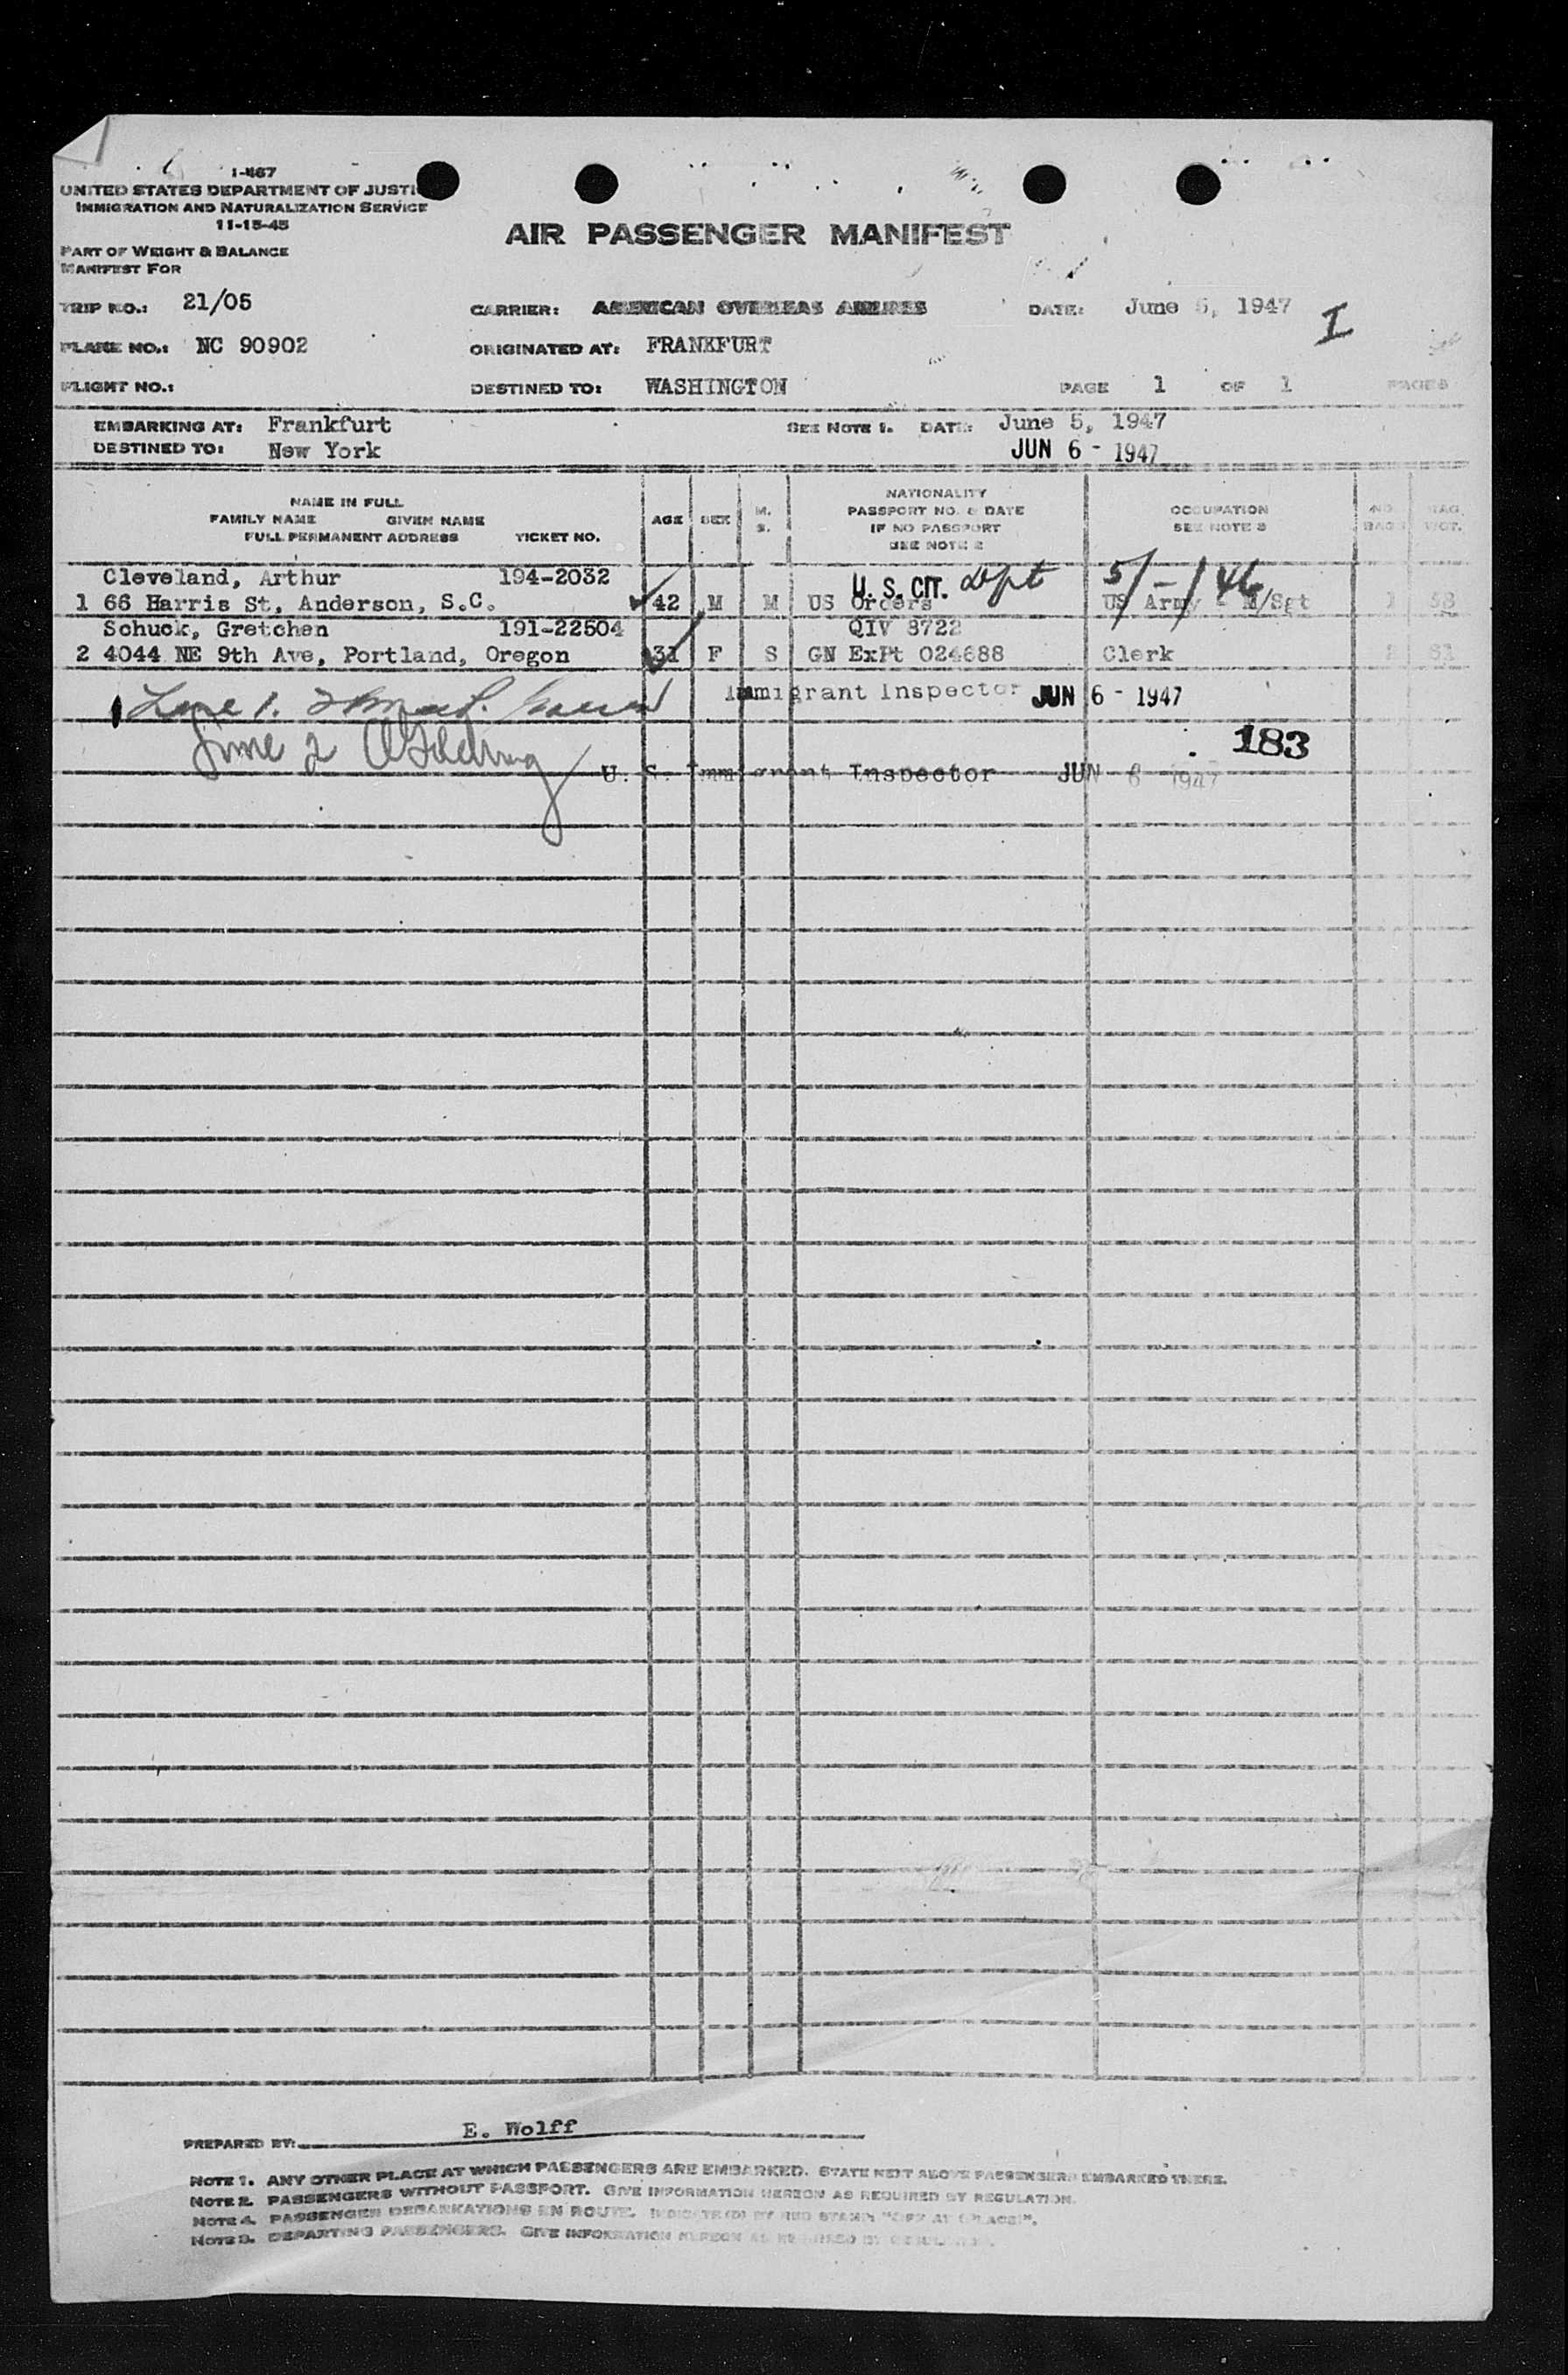 I-467
UNITED STATES DEPARTMENT OF JUSTI
IMMIGRATION AND NATURALIZATION SERVICE
11-15-45
AIR PASSENGER MANIFEST
PART OF WEIGHT & BALANCE
MANIFEST FOR
TRIP NO.: 21/05 CARRIER: AMERICAN OVERSEAS AIRLINES DATE: June 5, 1947 I
PLANE NO.: NC 90902 ORIGINATED AT: FRANKFURT
FLIGHT NO.: DESTINED TO: WASHINGTON PAGE 1 OF 1 PAGES
EMBARKING AT: Frankfurt SEE NOTE 1. DATE: June 5, 1947
DESTINED TO: New York JUN 6 - 1947
NAME IN FULL
FAMILY NAME GIVEN NAME
FULL PERMANENT ADDRESS TICKET NO.
AGE SEX M. S.
NATIONALITY
PASSPORT NO. & DATE
IF NO PASSPORT
SEE NOTE 2
OCCUPATION
SEE NOTE 3
NO. BAGS BAG. WGT.
Cleveland, Arthur 194-2032 U. S. CIT. Dpt 5/-/46
1 66 Harris St, Anderson, S.C. 42 M M US Orders US Army - M/Sgt 1 58
Schuck, Gretchen 191-22504 QIV 8722
2 4044 NE 9th Ave, Portland, Oregon 31 F S GN ExPt 024688 Clerk 2 81
Line 1. Immigrant Inspector JUN 6 - 1947
183
Line 2 U. S. Immigrant Inspector JUN 6 1947
PREPARED BY: E. Wolff
NOTE 1. ANY OTHER PLACE AT WHICH PASSENGERS ARE EMBARKED. STATE NEXT ABOVE PASSENGERS EMBARKED THERE.
NOTE 2. PASSENGERS WITHOUT PASSPORT. GIVE INFORMATION HEREON AS REQUIRED BY REGULATION.
NOTE 4. PASSENGER DEBARKATIONS EN ROUTE. INDICATE(D) BY RUD STAMP "OFF AT (PLACE)".
NOTE 3. DEPARTING PASSENGERS. GIVE INFORMATION HEREON AS REQUIRED BY REGULATION.